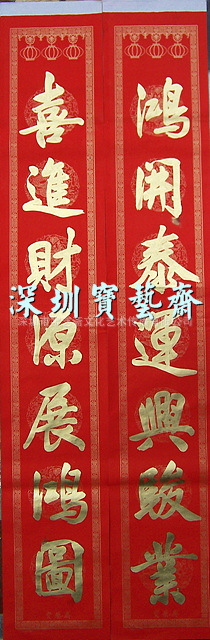 鴻開泰運興駿業
喜進財源展鴻圖
深圳寶藝齋